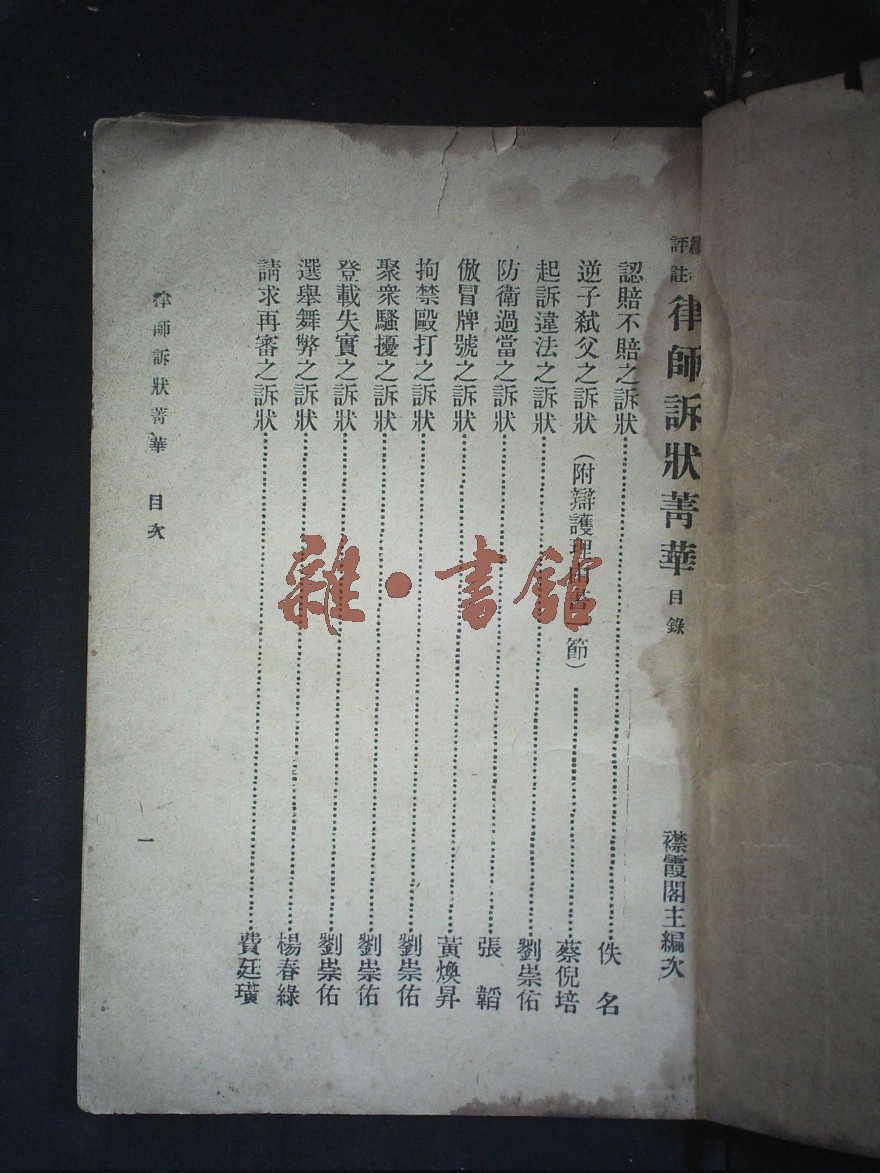 評註 律師訴狀菁華 目錄
襟霞閣主編次
認賠不賠之訴狀 佚名
逆子弒父之訴狀（附辯護理由書一節） 蔡倪培
起訴違法之訴狀 劉崇佑
防衛過當之訴狀 張韜
倣冒牌號之訴狀 黃煥昇
拘禁毆打之訴狀 劉崇佑
聚衆騷擾之訴狀 劉崇佑
登載失實之訴狀 劉崇佑
選舉舞弊之訴狀 楊春綠
請求再審之訴狀 費廷璜
律師訴狀菁華 目次 一
雜·書館